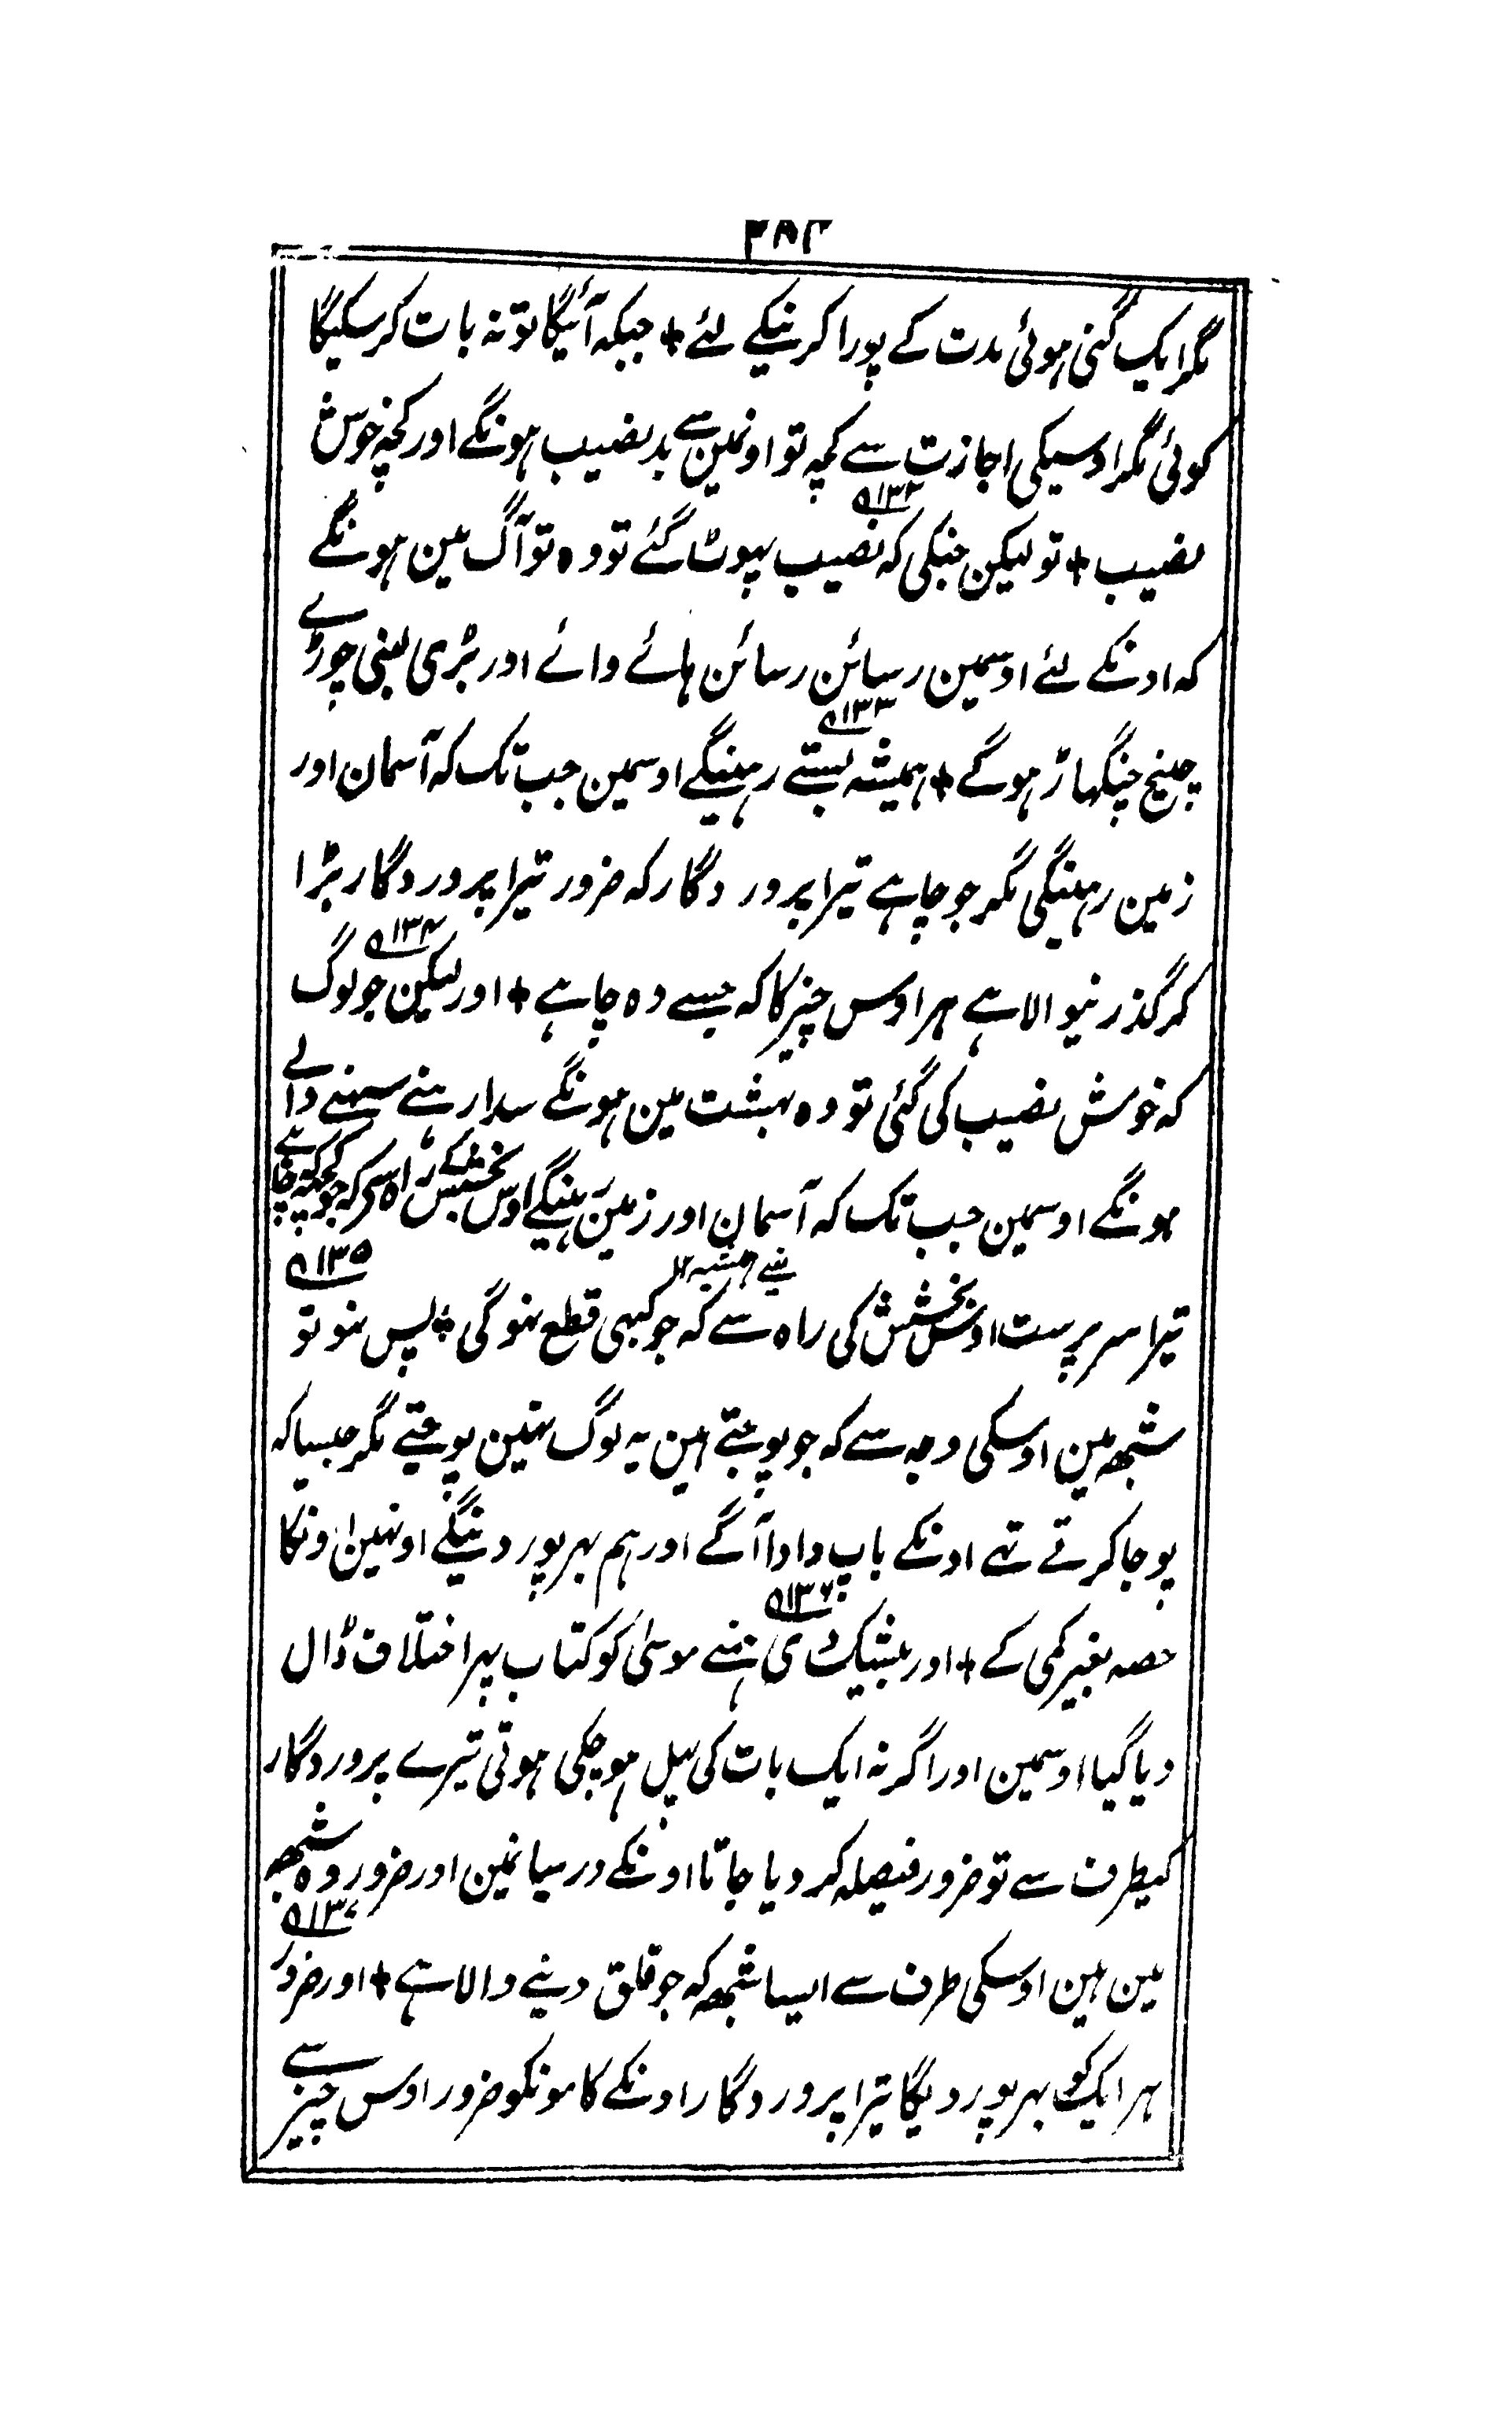 ۳۸۳
مگر ایک گنی ہوئی مدت کے پورا کرنیکے لئے + جبکہ آئیگا تو نہ بات کر سکیگا
کوئی مگر اوسیکی اجازت سے کچہ تو اونمین سے بد نصیب ہونگے اور کچہ خوش
۱۳۲
نصیب + تو لیکن جنکی کہ نصیب پہوٹ گئے تو وہ تو آگ مین ہونگے
کہ اونکے لئے اوسمین رسائن رسائن ہائے وائے اور بڑی لنبی چوڑے
۱۳۳
چینخ چنگہاڑ ہوگے + ہمیشہ بستے رہینگے اوسمین جب تک کہ آسمان اور
زمین رہینگی مگر جو چاہے تیرا پروردگار کہ ضرور تیرا پروردگار بڑا
۱۳۴
کر گذرنیوالا ہے ہر اوس چیز کا کہ جسے وہ چاہے + اور لیکن جو لوگ
کہ خوش نصیب کی گئی تو وہ بہشت مین ہونگے سدا رہنے سہنے والے
ہونگے اوسمین جب تک کہ آسمان اور زمین رہینگے اوس بخشش کے راہ سے کہ جو کچہ کو چاہے
۱۳۵
تیرا سرپرست اوس بخشش کی راہ سے کہ جو کبہی قطع نہوگی + پس نہو تو
شبھہ مین اوسکی وجہ سے کہ جو پوجتے ہین یہ لوگ نہین پوجتے مگر جیسا کہ
پوجا کرتے تہے اونکے باپ دادا آگے اور ہم بہرپور دینگے اونہین اونکا
۱۳۶
حصہ بغیر کمی کے + اور بیشک دی ہمنے موسیٰ کو کتاب پہر اختلاف ڈال
دیا گیا اوسمین اور اگر نہ ایک بات کی پہل ہو چکی ہوتی تیرے پروردگار
کیطرف سے تو ضرور فیصلہ کر دیا جاتا اونکے درمیانمین اور ضرور وہ شبھہ
۱۳۷
مین ہین اوسکی طرف سے ایسا شبھہ کہ جو قلق دینے والا ہے + اور ضرور
ہر ایک کو بہرپور دیگا تیرا پروردگار اونکے کامونکو ضرور اوس چیز سے